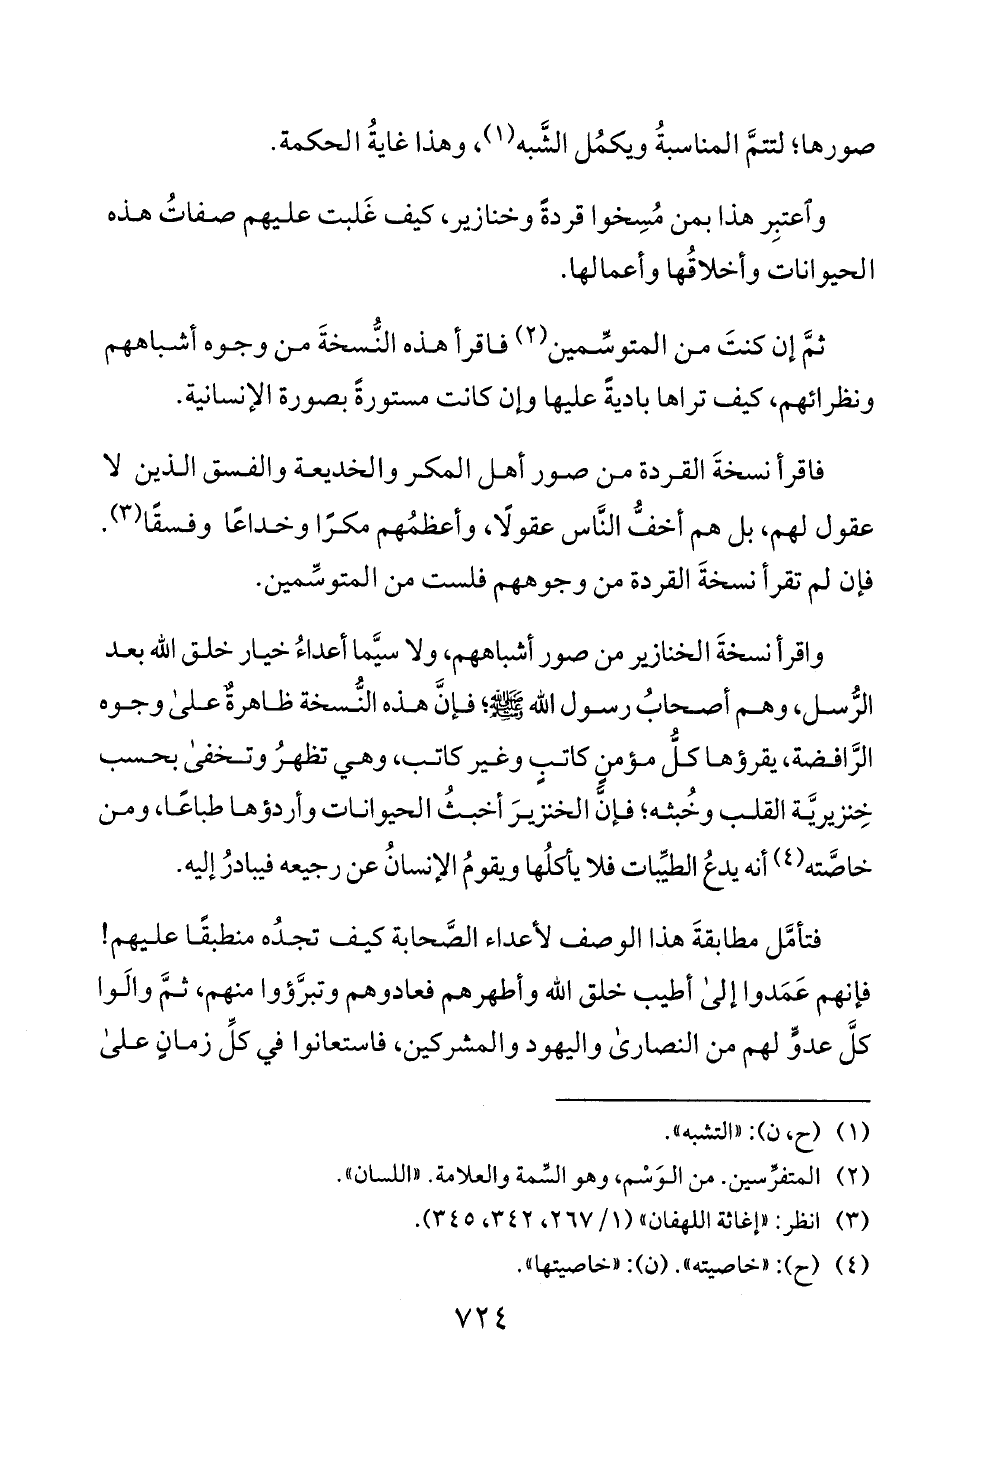 صورها؛ لتتمَّ المناسبةُ ويكمُل الشَّبه(١)، وهذا غايةُ الحكمة.
وٱعتبِر هذا بمن مُسِخوا قردةً وخنازير، كيف غَلبت عليهم صفاتُ هذه
الحيوانات وأخلاقُها وأعمالها.
ثمَّ إن كنتَ من المتوسِّمين(٢) فاقرأ هذه النُّسخةَ من وجوه أشباههم
ونظرائهم، كيف تراها باديةً عليها وإن كانت مستورةً بصورة الإنسانية.
فاقرأ نسخةَ القردة من صور أهل المكر والخديعة والفسق الذين لا
عقول لهم، بل هم أخفُّ النَّاس عقولًا، وأعظمُهم مكرًا وخداعًا وفسقًا(٣).
فإن لم تقرأ نسخةَ القردة من وجوههم فلست من المتوسِّمين.
واقرأ نسخةَ الخنازير من صور أشباههم، ولا سيَّما أعداءُ خيار خلق الله بعد
الرُّسل، وهم أصحابُ رسول الله ﷺ؛ فإنَّ هذه النُّسخة ظاهرةٌ علىٰ وجوه
الرَّافضة، يقرؤها كلُّ مؤمنٍ كاتبٍ وغير كاتب، وهي تظهرُ وتخفىٰ بحسب
خِنزيريَّة القلب وخُبثه؛ فإنَّ الخنزيرَ أخبثُ الحيوانات وأردؤها طباعًا، ومن
خاصَّته(٤) أنه يدعُ الطيِّبات فلا يأكلُها ويقومُ الإنسانُ عن رجيعه فيبادرُ إليه.
فتأمَّل مطابقةَ هذا الوصف لأعداء الصَّحابة كيف تجدُه منطبقًا عليهم!
فإنهم عَمَدوا إلىٰ أطيب خلق الله وأطهرهم فعادوهم وتبرَّؤوا منهم، ثمَّ والَوا
كلَّ عدوٍّ لهم من النصارىٰ واليهود والمشركين، فاستعانوا في كلِّ زمانٍ علىٰ
(١) (ح، ن): «التشبه».
(٢) المتفرِّسين. من الوَسْم، وهو السِّمة والعلامة. «اللسان».
(٣) انظر: «إغاثة اللهفان» (١/ ٢٦٧، ٣٤٢، ٣٤٥).
(٤) (ح): «خاصيته». (ن): «خاصيتها».
٧٢٤